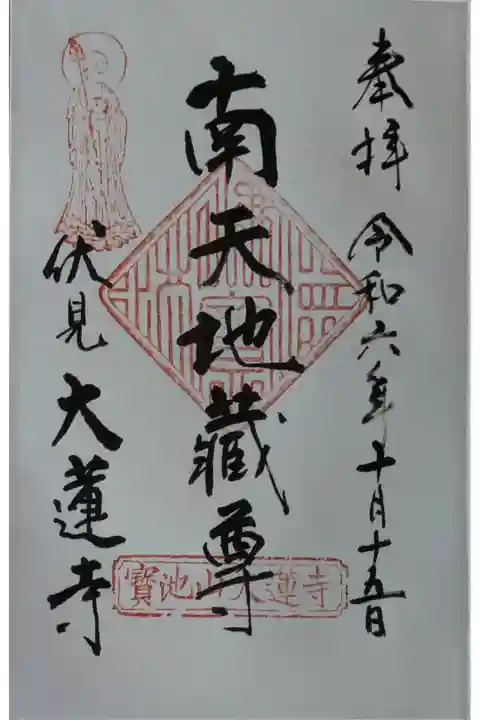 奉拝 令和六年十月十五日
南天地藏尊
伏見 大蓮寺
寳池山大蓮寺